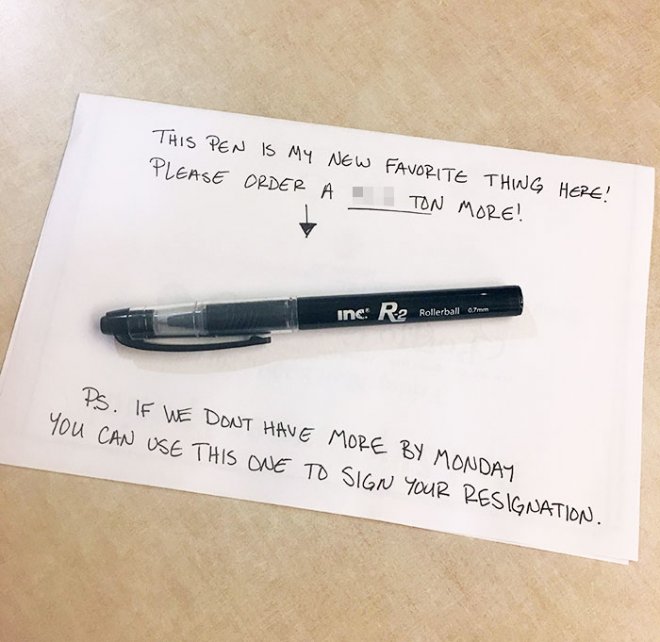 THIS PEN IS MY NEW FAVORITE THING HERE!
PLEASE ORDER A TON MORE!
inc. R2 Rollerball 0.7mm
P.S. IF WE DONT HAVE MORE BY MONDAY
YOU CAN USE THIS ONE TO SIGN YOUR RESIGNATION.